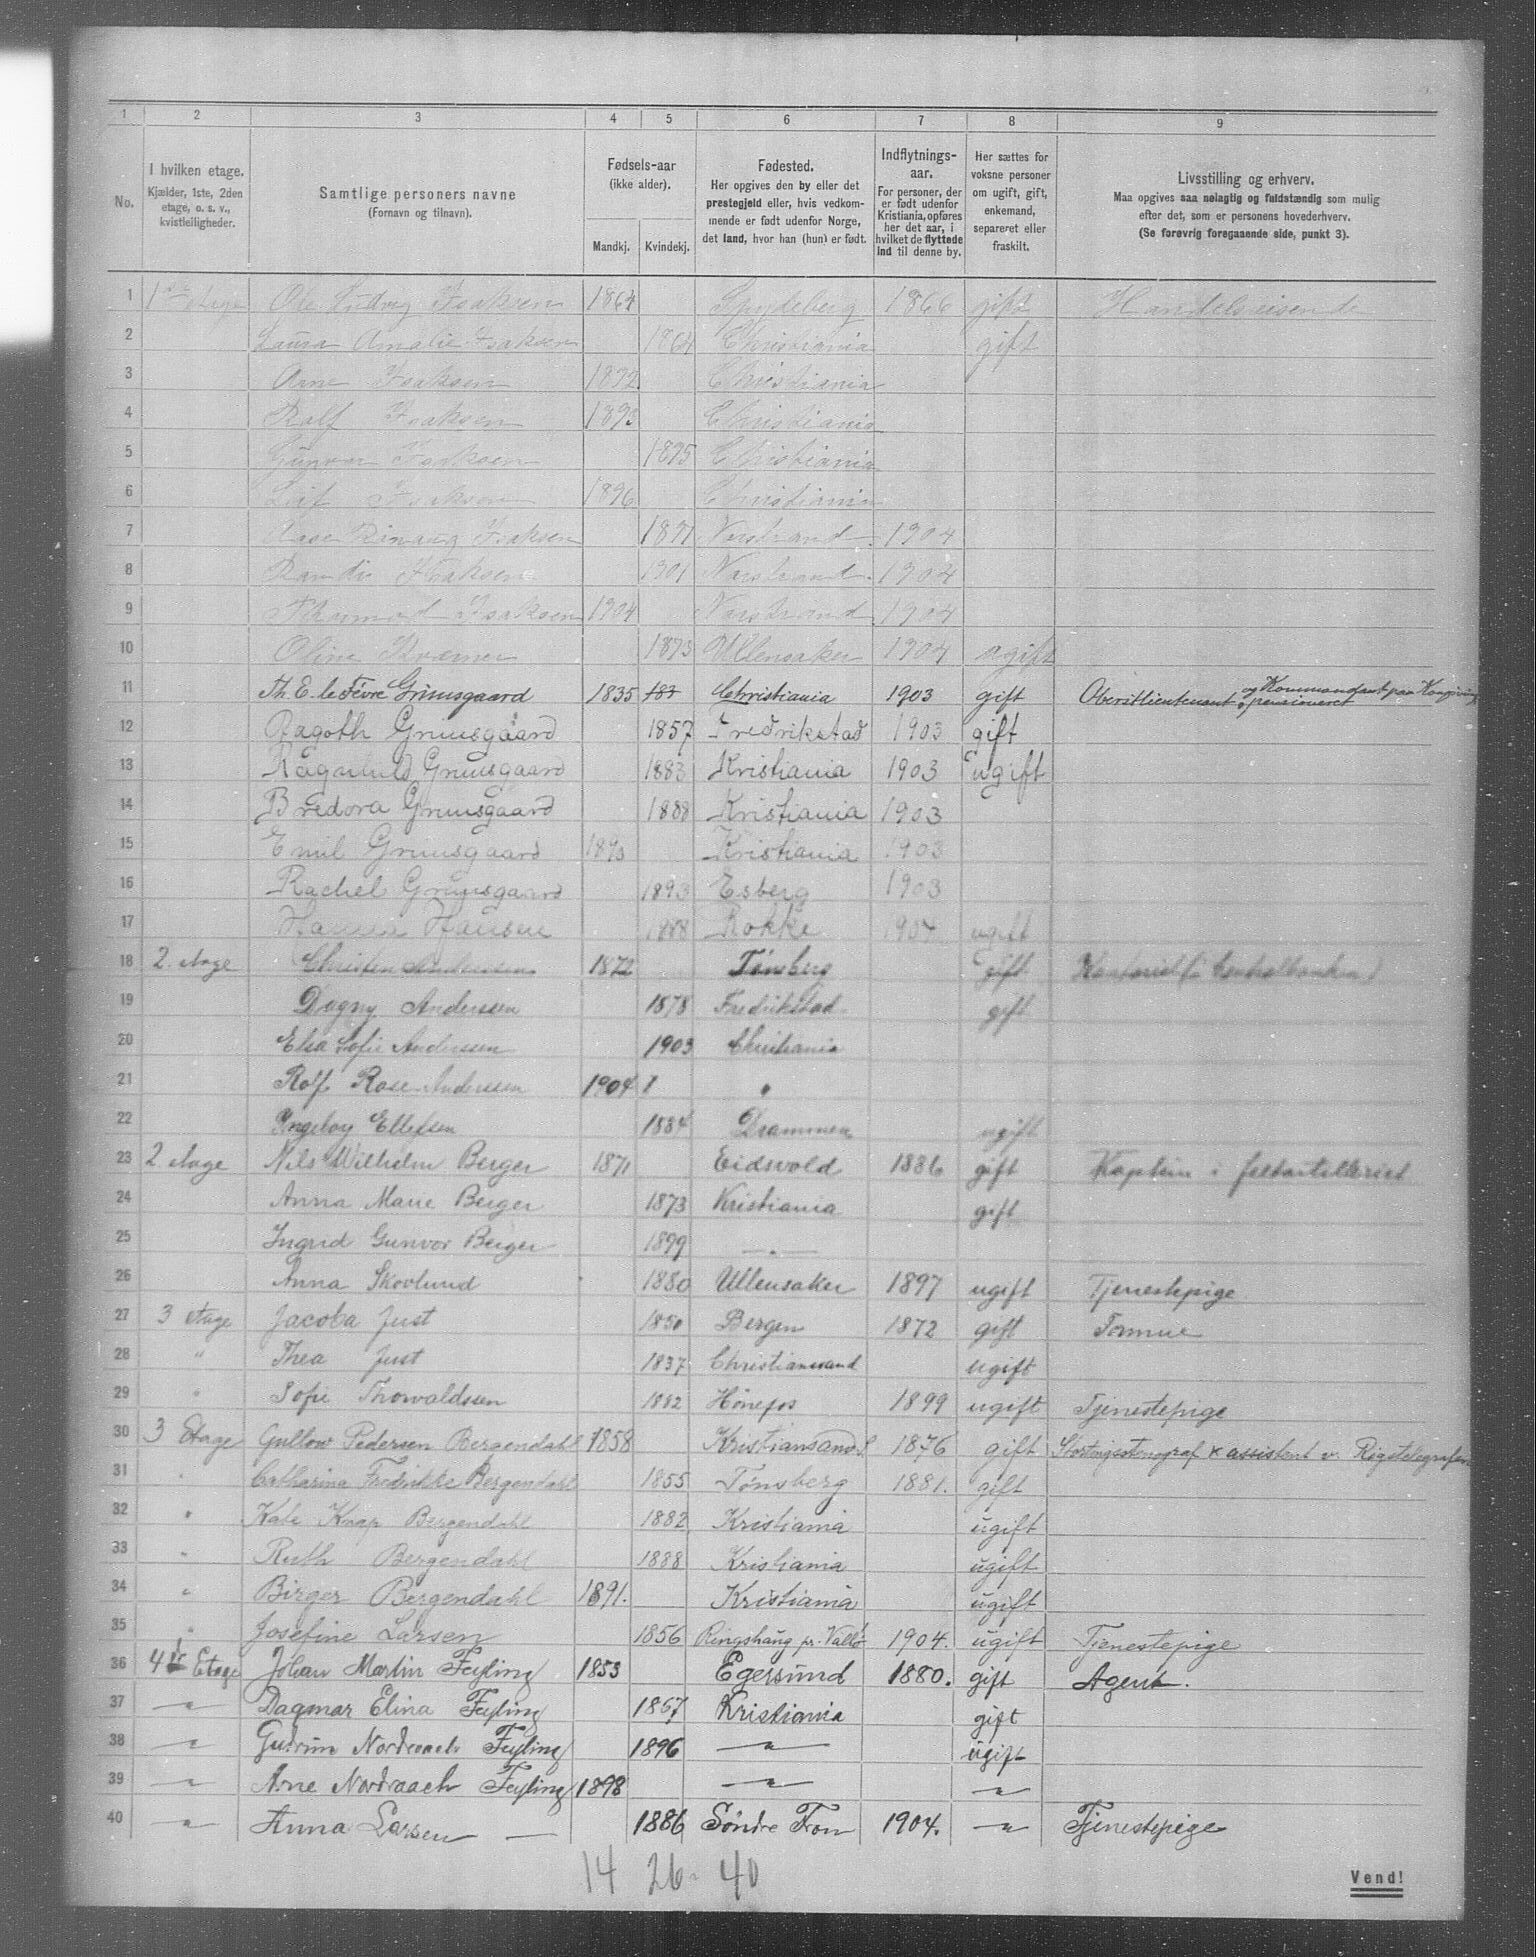 1 2 3 4 5 6 7 8 9
No.
I hvilken etage.
Kjælder, 1ste, 2den
etage, o. s. v.,
kvistleiligheder.
Samtlige personers navne
(Fornavn og tilnavn).
Fødsels-aar
(ikke alder).
Mandkj. Kvindekj.
Fødested.
Her opgives den by eller det
prestegjeld eller, hvis vedkom-
mende er født udenfor Norge,
det land, hvor han (hun) er født.
Indflytnings-
aar.
For personer, der
er født udenfor
Kristiania, opføres
her det aar, i
hvilket de flyttede
ind til denne by.
Her sættes for
voksne personer
om ugift, gift,
enkemand,
separeret eller
fraskilt.
Livsstilling og erhverv.
Maa opgives saa nøiagtig og fuldstændig som mulig
efter det, som er personens hovederhverv.
(Se forøvrig foregaaende side, punkt 3).
1 1ste etage Ole Ludvig Isaksen 1864 Spydeberg 1866 gift Handelsreisende
2 Laura Amalie Isaksen 1864 Christiania gift
3 Arne Isaksen 1892 Christiania
4 Ralf Isaksen 1893 Christiania
5 Gunvor Isaksen 1895 Christiania
6 Leif Isaksen 1896 Christiania
7 Aase Isaksen Norstrand 1904
8 Randi Isaksen 1901 Norstrand 1904
9 Thormod Isaksen 1904 Norstrand 1904
10 Oline 1873 Ullensaker 1904 ugift
11 Th. E. le Fèvre Grimsgaard 1835 183 Christiania 1903 gift Oberstlieutenant og Kommandant paa pensioneret
12 Ragoth Grimsgaard 1857 Fredrikstad 1903 gift
13 Ragnhild Grimsgaard 1883 Kristiania 1903 ugift
14 Bredora Grimsgaard 1888 Kristiania 1903
15 Emil Grimsgaard Kristiania 1903
16 Rachel Grimsgaard 1893 Esberg 1903
17 Hanna Hansen 1888 Rokke 1904 ugift
18 2. etage Christen Anderssen 1872 Tønsberg gift Kontorist (i Centralbanken)
19 Dagny Anderssen 1878 Fredrikstad gift
20 Elsa Sofie Anderssen 1903 Christiania
21 Rolf Rose Anderssen 1904 "
22 Ingeborg Ellefsen 1884 Drammen ugift
23 2. etage Nils Wilhelm Berger 1871 Eidsvold 1886 gift Kaptein i feltartilleriet
24 Anna Marie Berger 1873 Kristiania gift
25 Ingrid Gunvor Berger 1899 — " —
26 Anna Skovlund 1880 Ullensaker 1897 ugift Tjenestepige
27 3 etage Jacoba Just 1850 Bergen 1872 gift Formue
28 " Thea Just 1837 Christianssand ugift
29 " Sofie Thorvaldsen 1882 Hønefos 1899 ugift Tjenestepige
30 3 Etage Gullow Pedersen Bergendahl 1858 Kristiansand S. 1876 gift Stortingsstenograf & assistent v. Rigstelegrafen
31 " Catharina Fredrikke Bergendahl 1855 Tønsberg 1881. gift
32 " Kate Knap Bergendahl 1882 Kristiania ugift
33 " Ruth Bergendahl 1888 Kristiania ugift
34 " Birger Bergendahl 1891. Kristiania ugift
35 " Josefine Larsen 1856 Ringshaug pr. Vallø 1904. ugift Tjenestepige
36 4de Etage Johan Martin Feyling 1853 Egersund 1880. gift Agent.
37 — " — Dagmar Elina Feyling 1867 Kristiania gift
38 — " — Gudrun Nordraach Feyling 1896 — " — ugift
39 — " — Arne Nordraach Feyling 1898 — " — — " —
40 — " — Anna Larsen — 1886 Søndre Fron 1904. — " — Tjenestepige
14 26 - 40
Vend!